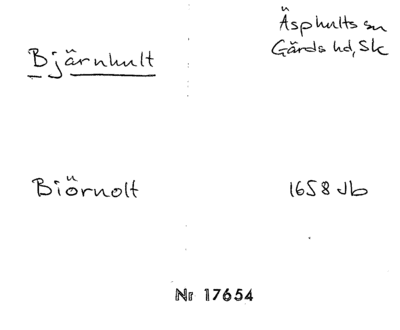 Bjärnhult
Äsphults sn
Gärds hd, Sk
Biörnolt
1658 Jb
Nr 17654